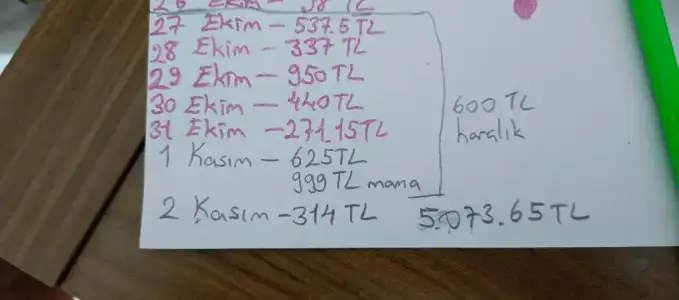 27 Ekim - 537.5 TL
28 Ekim - 337 TL
29 Ekim - 950 TL
30 Ekim - 440 TL
31 Ekim - 271.15 TL
1 Kasım - 625 TL
999 TL mama
2 Kasım - 314 TL
600 TL
haralik
5.073.65 TL